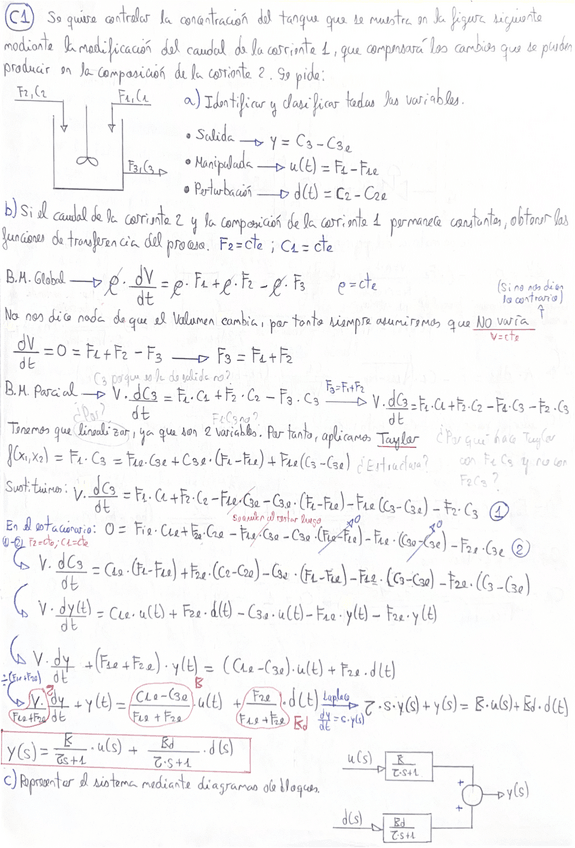 C1) Se quiere controlar la concentración del tanque que se muestra en la figura siguiente
mediante la modificación del caudal de la corriente 1, que compensará los cambios que se pueden
producir en la composición de la corriente 2. Se pide:
F2,C2 F1,C1
F3,C3
a) Identificar y clasificar todas las variables.
• Salida → y = C3 - C3e
• Manipulada → u(t) = F1 - F1e
• Perturbación → d(t) = C2 - C2e
b) Si el caudal de la corriente 2 y la composición de la corriente 1 permanece constantes, obtener las
funciones de transferencia del proceso. F2=cte ; C1=cte
B.M. Global → ρ · dV/dt = ρ · F1 + ρ · F2 - ρ · F3 ρ=cte
(Si no nos dicen
lo contrario)
No nos dice nada de que el Volumen cambia, por tanto siempre asumiremos que No varía
V=cte
dV/dt = 0 = F1 + F2 - F3 → F3 = F1 + F2
C3 porque es la de salida no?
B.M. Parcial → V · dC3/dt = F1 · C1 + F2 · C2 - F3 · C3 F3=F1+F2 → V · dC3/dt = F1 · C1 + F2 · C2 - F1 · C3 - F2 · C3
¿Por?
Tenemos que linealizar, ya que son 2 variables. Por tanto, aplicamos Taylor
¿Por qué hace Taylor
con F1C3 y no con
F2C3?
f(x1,x2) = F1 · C3 = F1e · C3e + C3e · (F1 - F1e) + F1e (C3 - C3e) ¿Estructura?
Sustituimos: V · dC3/dt = F1 · C1 + F2 · C2 - F1e · C3e - C3e · (F1 - F1e) - F1e (C3 - C3e) - F2 · C3 ①
En el estacionario: 0 = F1e · C1e + F2e · C2e - F1e · C3e - C3e · (F1e - F1e) - F1e · (C3e - C3e) - F2e · C3e ②
①-② F2=cte; C1=cte
V · dC3/dt = C1e · (F1 - F1e) + F2e · (C2 - C2e) - C3e · (F1 - F1e) - F1e · (C3 - C3e) - F2e · (C3 - C3e)
V · dy(t)/dt = C1e · u(t) + F2e · d(t) - C3e · u(t) - F1e · y(t) - F2e · y(t)
V · dy/dt + (F1e + F2e) · y(t) = (C1e - C3e) · u(t) + F2e · d(t)
÷(F1e+F2e)
V/(F1e+F2e) · dy/dt + y(t) = (C1e - C3e)/(F1e + F2e) · u(t) + F2e/(F1e + F2e) · d(t) Laplace → τ · s · y(s) + y(s) = K · u(s) + Kd · d(s)
τ K Kd dy/dt = s · y(s)
y(s) = K/(τs+1) · u(s) + Kd/(τ·s+1) · d(s)
c) Representar el sistema mediante diagramas de bloques.
u(s) K/(τ·s+1)
+ + y(s)
d(s) Kd/(τ·s+1)